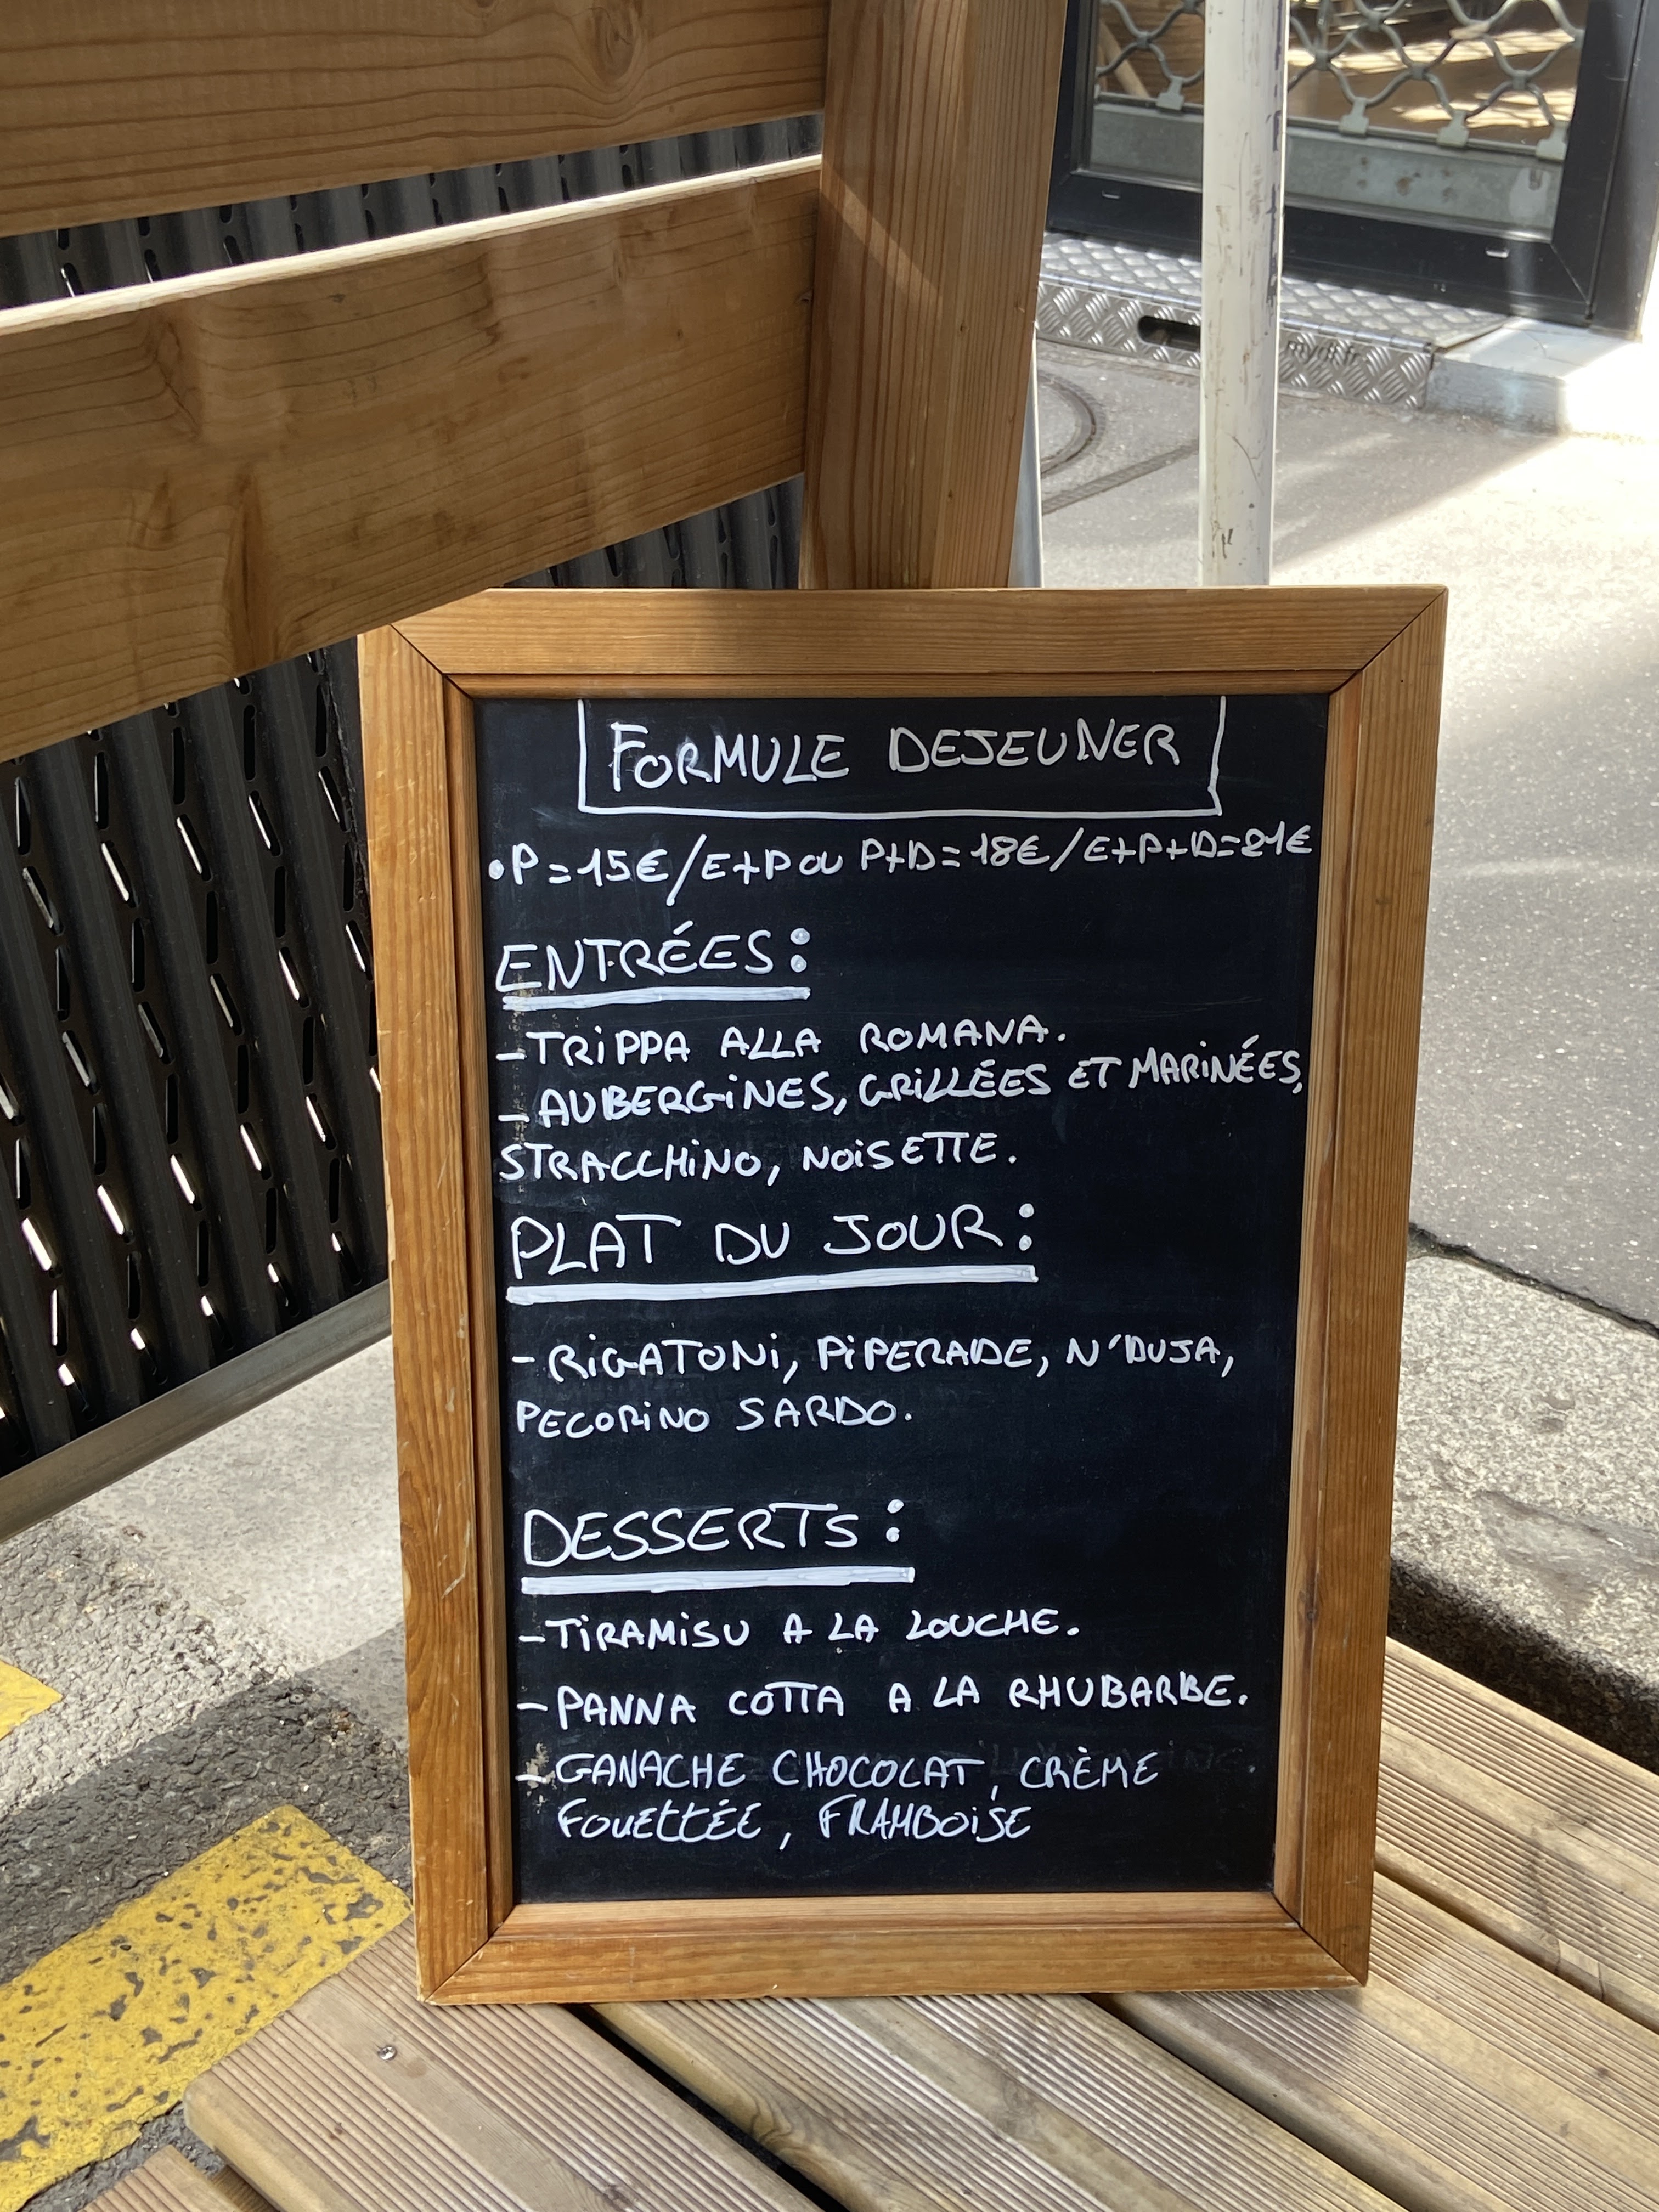 FORMULE DEJEUNER
•P=15€/E+P OU P+D=18€/E+P+D=21€
ENTRÉES:
-TRIPPA ALLA ROMANA.
-AUBERGINES, GRILLÉES ET MARINÉES,
STRACCHINO, NOISETTE.
PLAT DU JOUR:
-RIGATONI, PIPERADE, N'DUJA,
PECORINO SARDO.
DESSERTS:
-TIRAMISU A LA LOUCHE.
-PANNA COTTA A LA RHUBARBE.
-GANACHE CHOCOLAT, CRÈME
FOUETTÉE, FRAMBOISE